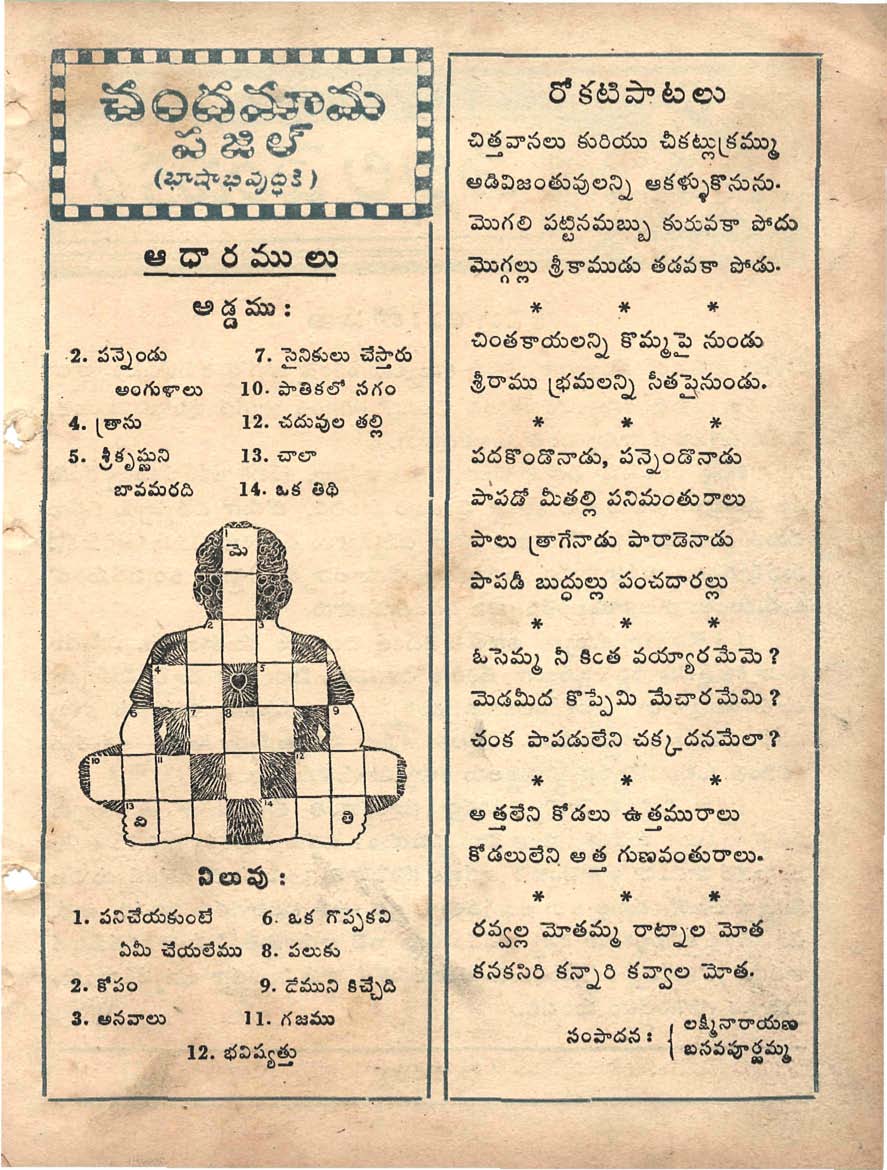 చందమామ
పజిల్
(భాషాభివృద్ధికి)
ఆధారములు
అడ్డము :
2. పన్నెండు
అంగుళాలు
4. త్రాను
5. శ్రీకృష్ణుని
బావమరది
7. సైనికులు చేస్తారు
10. పాతికలో నగం
12. చదువుల తల్లి
13. చాలా
14. ఒక తిథి
1
మె
2
3
4
5
6
7
8
9
10
11
12
13
వి
14
తి
నిలువు :
1. పనిచేయకుంటే
ఏమీ చేయలేము
2. కోపం
3. అనవాలు
6. ఒక గొప్పకవి
8. పలుకు
9. దేముని కిచ్చేది
11. గజము
12. భవిష్యత్తు
రోకటిపాటలు
చిత్తవానలు కురియు చీకట్లుక్రమ్ము
అడివిజంతువులన్ని ఆకళ్ళుకొనును.
మొగలి పట్టినమబ్బు కురువకా పోదు
మొగ్గల్లు శ్రీకాముడు తడవకా పోడు.
* * *
చింతకాయలన్ని కొమ్మపై నుండు
శ్రీరాము భ్రమలన్ని సీతపైనుండు.
* * *
పదకొండొనాడు, పన్నెండొనాడు
పాపడో మీతల్లి పనిమంతురాలు
పాలు త్రాగేనాడు పారాడెనాడు
పాపడీ బుద్ధుల్లు పంచదారల్లు
* * *
ఓసెమ్మ నీ కింత వయ్యారమేమె ?
మెడమీద కొప్పేమి మేచారమేమి ?
చంక పాపడులేని చక్కదనమేలా ?
* * *
అత్తలేని కోడలు ఉత్తమురాలు
కోడలులేని అత్త గుణవంతురాలు.
* * *
రవ్వల్ల మోతమ్మ రాట్నాల మోత
కనకసిరి కన్నారి కవ్వాల మోత.
సంపాదన : { లక్ష్మీనారాయణ
బసవపూర్ణమ్మ